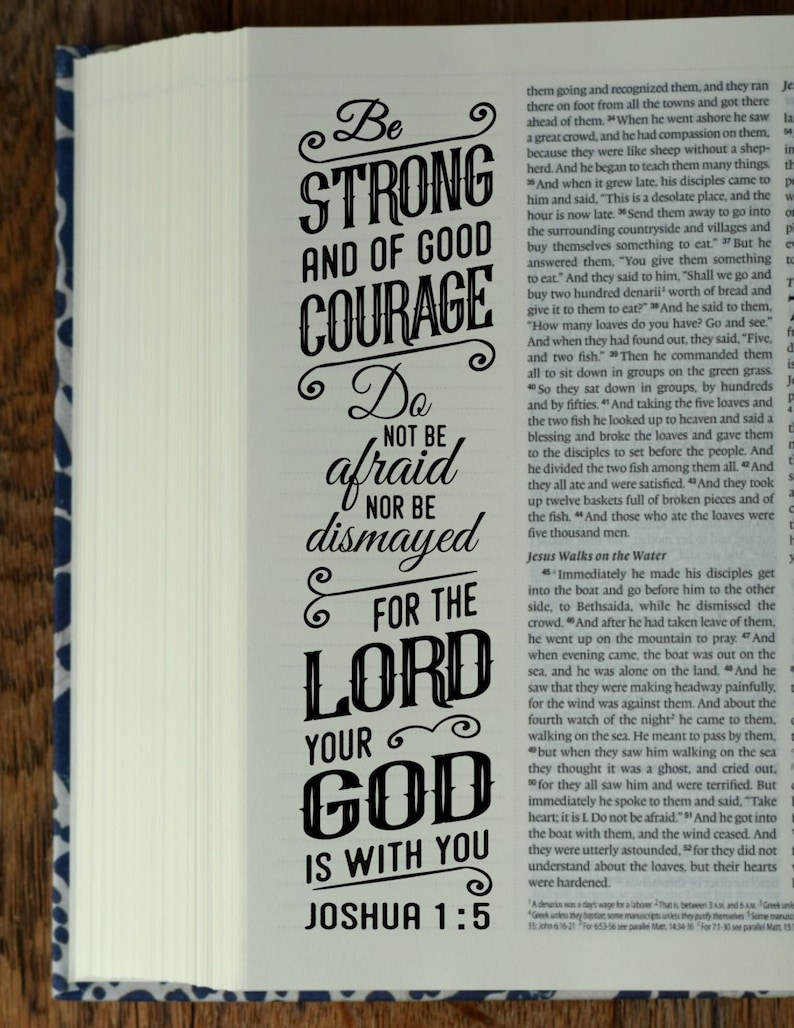 Be
STRONG
AND OF GOOD
COURAGE
Do
NOT BE
afraid
NOR BE
dismayed
FOR THE
LORD
YOUR
GOD
IS WITH YOU
JOSHUA 1:5
them going and recognized them, and they ran
there on foot from all the towns and got there
ahead of them. 34 When he went ashore he saw
a great crowd, and he had compassion on them,
because they were like sheep without a shep-
herd. And he began to teach them many things.
35 And when it grew late, his disciples came to
him and said, "This is a desolate place, and the
hour is now late. 36 Send them away to go into
the surrounding countryside and villages and
buy themselves something to eat." 37 But he
answered them, "You give them something
to eat." And they said to him, "Shall we go and
buy two hundred denarii1 worth of bread and
give it to them to eat?" 38 And he said to them,
"How many loaves do you have? Go and see."
And when they had found out, they said, "Five,
and two fish." 39 Then he commanded them
all to sit down in groups on the green grass.
40 So they sat down in groups, by hundreds
and by fifties. 41 And taking the five loaves and
the two fish he looked up to heaven and said a
blessing and broke the loaves and gave them
to the disciples to set before the people. And
he divided the two fish among them all. 42 And
they all ate and were satisfied. 43 And they took
up twelve baskets full of broken pieces and of
the fish. 44 And those who ate the loaves were
five thousand men.
Jesus Walks on the Water
45 Immediately he made his disciples get
into the boat and go before him to the other
side, to Bethsaida, while he dismissed the
crowd. 46 And after he had taken leave of them,
he went up on the mountain to pray. 47 And
when evening came, the boat was out on the
sea, and he was alone on the land. 48 And he
saw that they were making headway painfully,
for the wind was against them. And about the
fourth watch of the night2 he came to them,
walking on the sea. He meant to pass by them,
49 but when they saw him walking on the sea
they thought it was a ghost, and cried out,
50 for they all saw him and were terrified. But
immediately he spoke to them and said, "Take
heart; it is I. Do not be afraid." 51 And he got into
the boat with them, and the wind ceased. And
they were utterly astounded, 52 for they did not
understand about the loaves, but their hearts
were hardened.
1 A denarius was a day's wage for a laborer 2 That is, between 3 A.M. and 6 A.M. 3 Greek
4 Greek unless they baptize; some manuscripts unless they purify themselves 5 Some
13; John 6:16-21 5 For 6:53-56 see parallel Matt. 14:34-36 c For 7:1-30 see parallel Matt.